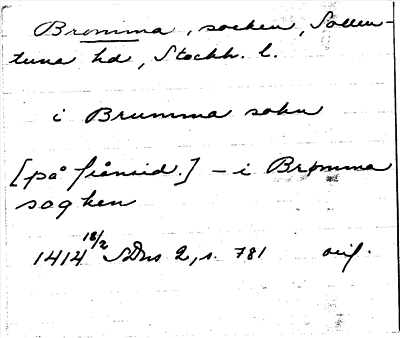 Bromma, socken, Sollen-
tuna hd, Stockh. l.
i Brumma sokn
[på frånsid.] – i Bromma
sogken
1414 18/2 SDns 2, s. 781 orig.